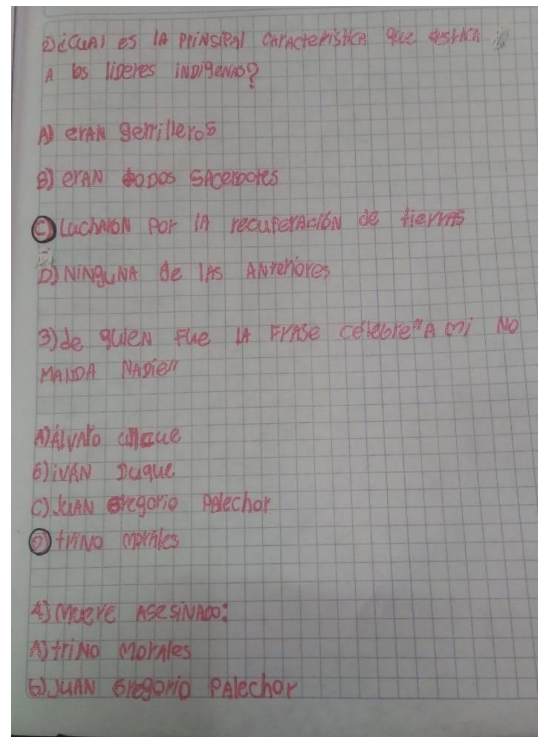 2) ¿CUAl es lA PRINSIPAl CARACteRistiCA que destACA
A los lideres INDIgENAS?
A) erAN gerrilleros
B) erAN todos SACerDotes
C) LuchARON Por lA recuperAción de tierrAs
D) NINguNA de lAs ANteriores
3) de quieN Fue lA FrAse célebre "A mi No
MANDA NADie"
A) ÁlvAro ulcue
B) iVÁN Duque
C) JuAN gregorio PAlechor
D) triNo morAles
4) Muere ASESiNADO:
A) triNo MorAles
B) JUAN GregoRio PAlechor